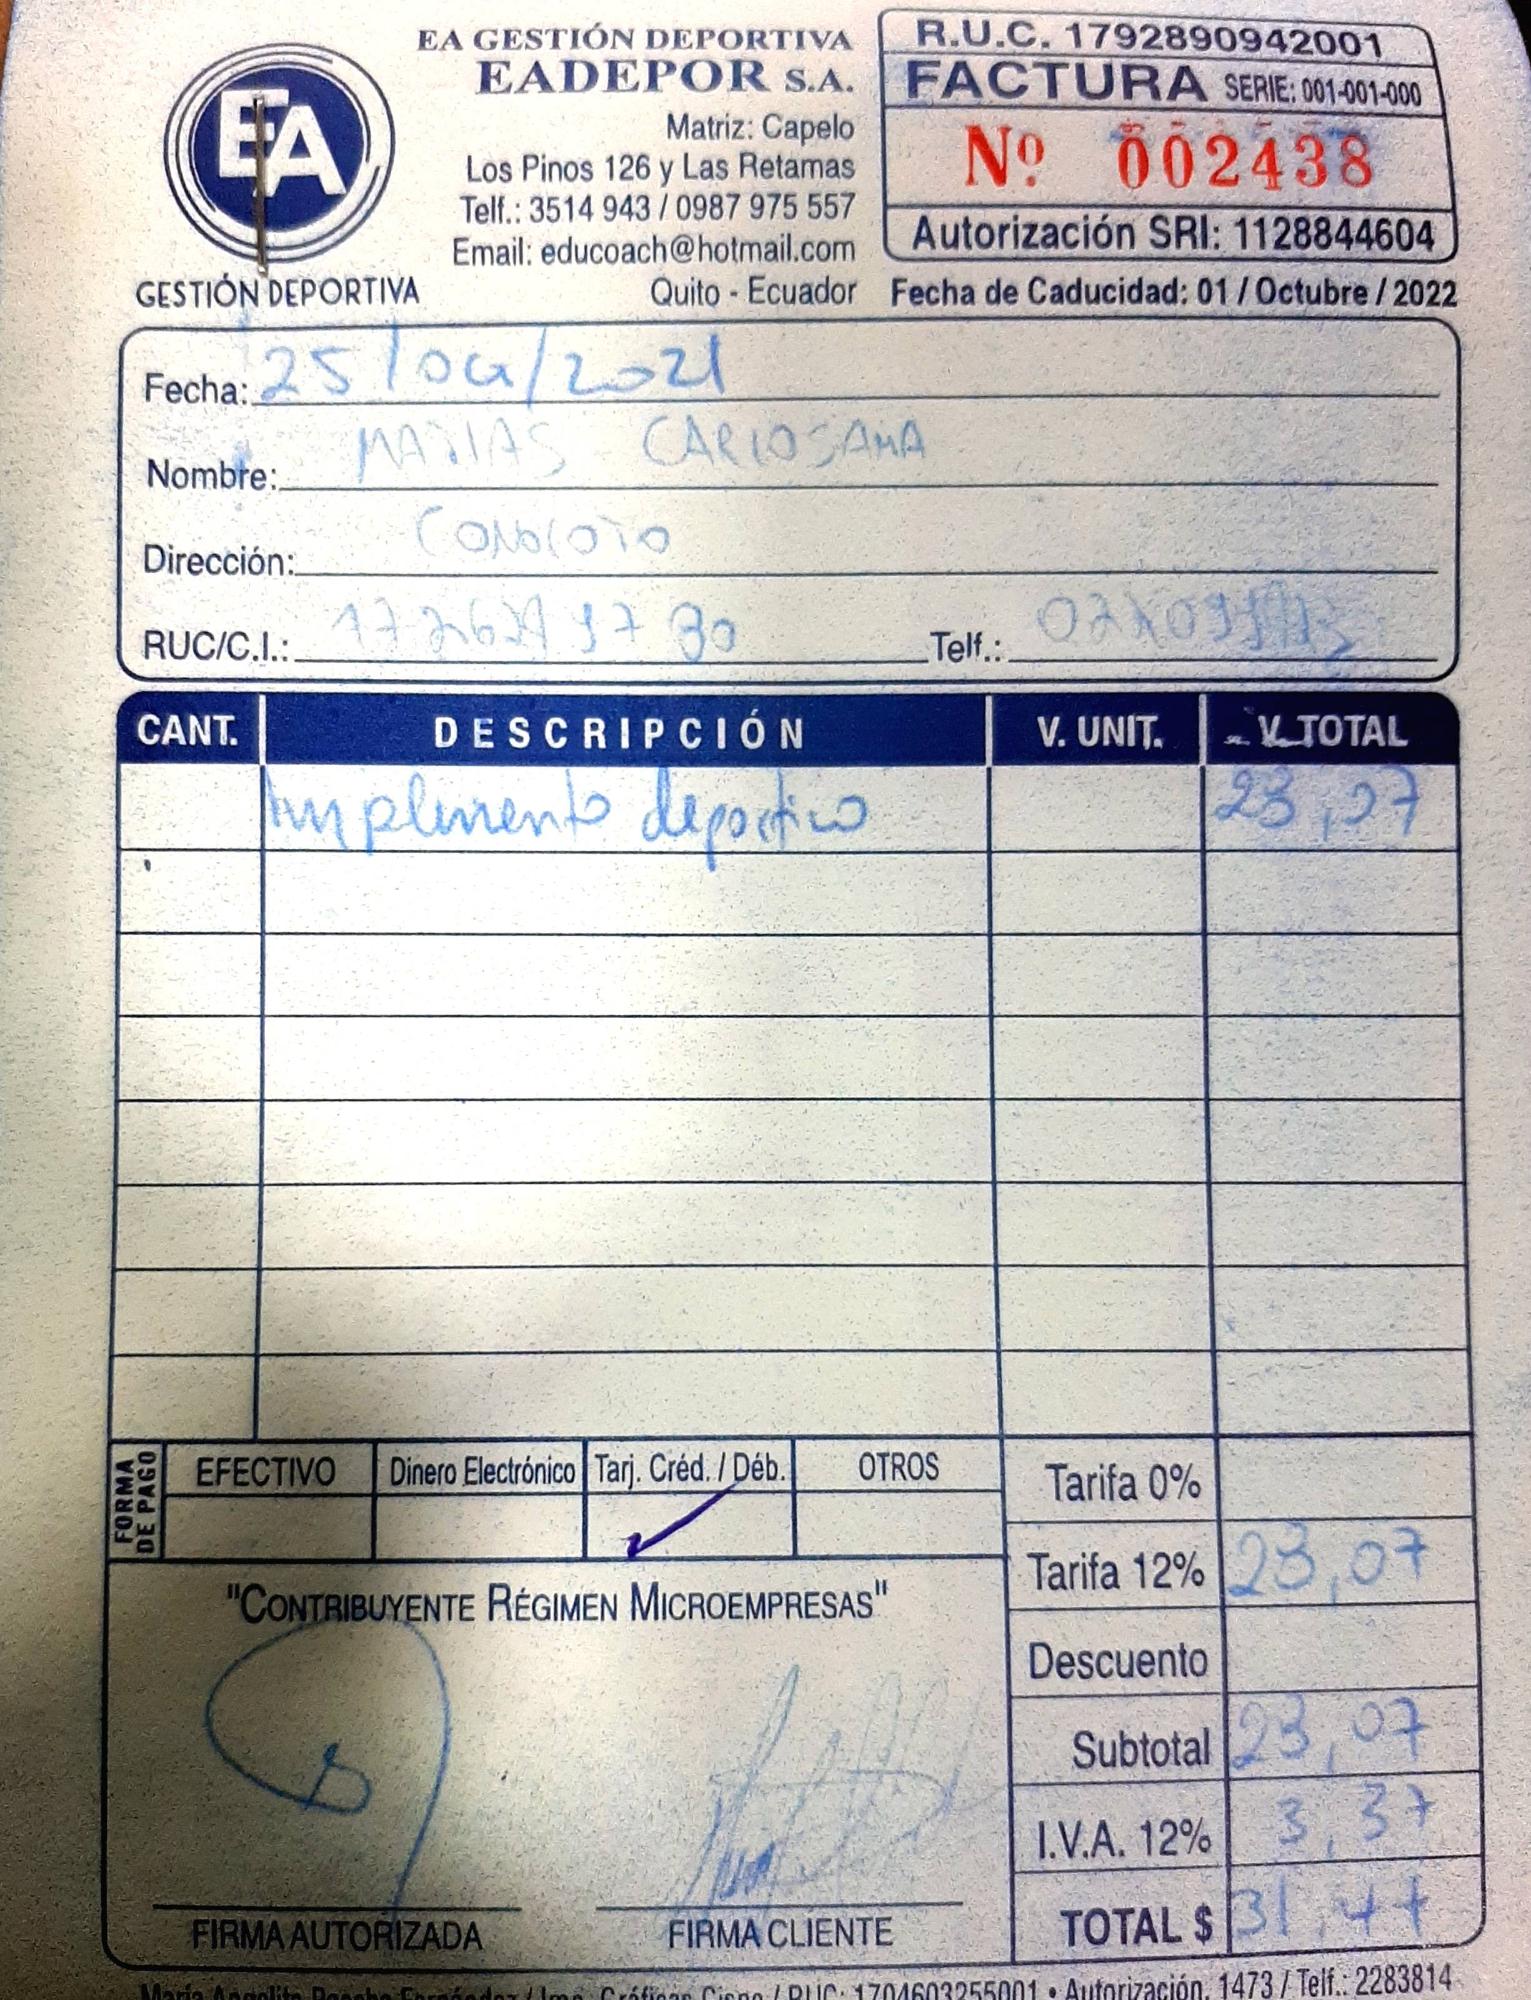 EA GESTIÓN DEPORTIVA
EADEPOR S.A.
Matriz: Capelo
Los Pinos 126 y Las Retamas
Telf.: 3514 943 / 0987 975 557
Email: educoach@hotmail.com
Quito - Ecuador
EA
GESTIÓN DEPORTIVA
R.U.C. 1792890942001
FACTURA SERIE: 001-001-000
Nº 002438
Autorización SRI: 1128844604
Fecha de Caducidad: 01 / Octubre / 2022
Fecha: 25/06/2021
Nombre: MATIAS CARLOSAMA
Dirección: CONOCOTO
RUC/C.I.: Telf.:
CANT. DESCRIPCIÓN V. UNIT. V. TOTAL
Implemento deportivo
FORMA DE PAGO
EFECTIVO Dinero Electrónico Tarj. Créd. / Déb. OTROS
✓
Tarifa 0%
Tarifa 12% 23,07
Descuento
Subtotal 23,07
I.V.A. 12% 3,37
TOTAL $
"CONTRIBUYENTE RÉGIMEN MICROEMPRESAS"
FIRMA AUTORIZADA FIRMA CLIENTE
RUC: 1704603255001 • Autorización. 1473 / Telf.: 2283814